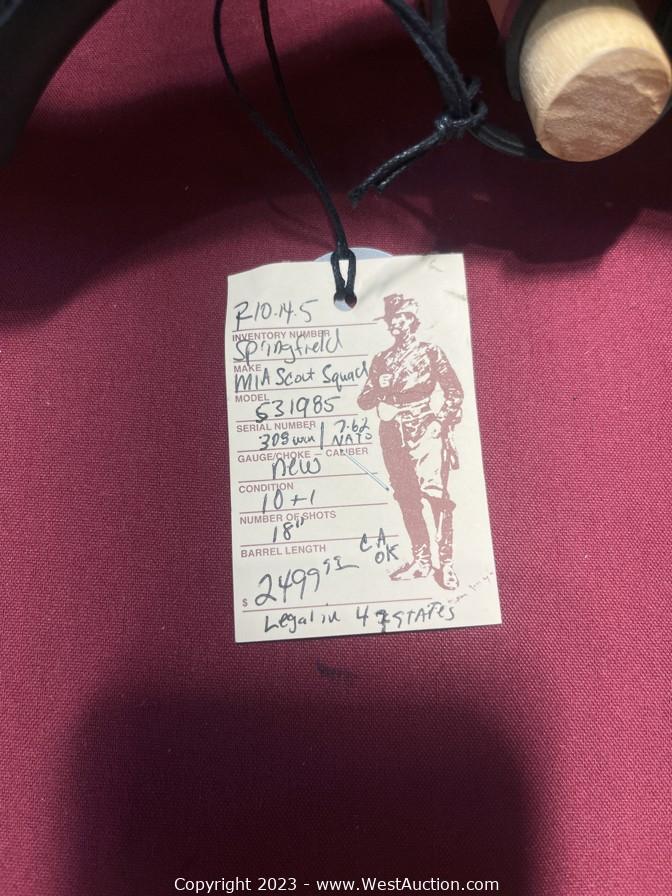 R10.14.5
INVENTORY NUMBER
Springfield
MAKE
M1A Scout Squad
MODEL
531985
SERIAL NUMBER
308 win / 7.62 NATO
GAUGE/CHOKE – CALIBER
New
CONDITION
10+1
NUMBER OF SHOTS
18"
BARREL LENGTH
CA OK
$ 2499.99
Legal in 47 STATES
Copyright 2023 - www.WestAuction.com